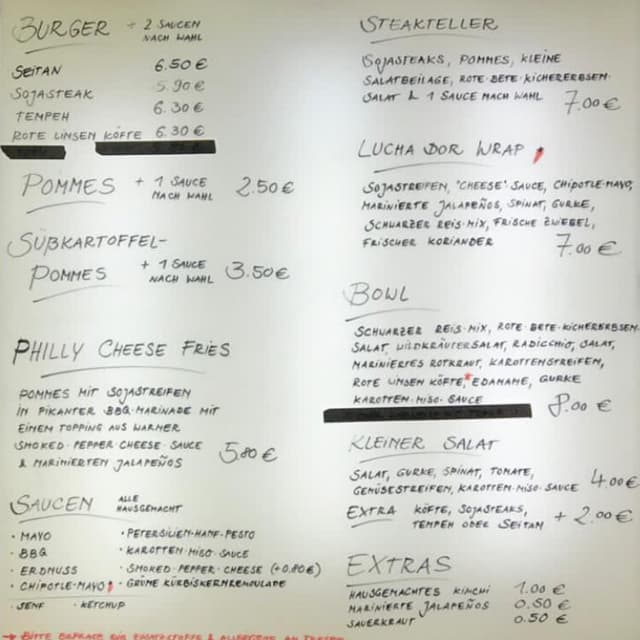 BURGER + 2 SAUCEN
NACH WAHL
SEITAN 6.50€
SOJASTEAK 5.90€
TEMPEH 6.30€
ROTE LINSEN KÖFTE 6.30€
POMMES + 1 SAUCE
NACH WAHL 2.50€
SÜßKARTOFFEL-
POMMES + 1 SAUCE
NACH WAHL 3.50€
PHILLY CHEESE FRIES
POMMES MIT SOJASTREIFEN
IN PIKANTER BBQ-MARINADE MIT
EINEM TOPPING AUS WARMER
SMOKED-PEPPER-CHEESE-SAUCE
& MARINIERTEN JALAPEÑOS 5.80€
SAUCEN ALLE
HAUSGEMACHT
· MAYO
· BBQ
· ERDNUSS
· CHIPOTLE-MAYO
· SENF · KETCHUP
· PETERSILIEN-HANF-PESTO
· KAROTTEN-MISO-SAUCE
· SMOKED-PEPPER-CHEESE (+0.80€)
· GRÜNE KÜRBISKERNREMOULADE
STEAKTELLER
SOJASTEAKS, POMMES, KLEINE
SALATBEILAGE, ROTE-BETE-KICHERERBSEN-
SALAT & 1 SAUCE NACH WAHL 7.00€
LUCHA DOR WRAP
SOJASTREIFEN, "CHEESE"SAUCE, CHIPOTLE-MAYO,
MARINIERTE JALAPEÑOS, SPINAT, GURKE,
SCHWARZER REIS-MIX, FRISCHE ZWIEBEL,
FRISCHER KORIANDER 7.00€
BOWL
SCHWARZER REIS-MIX, ROTE-BETE-KICHERERBSEN-
SALAT, WILDKRÄUTERSALAT, RADICCHIO, SALAT,
MARINIERTES ROTKRAUT, KAROTTENSTREIFEN,
ROTE LINSEN KÖFTE,* EDAMAME, GURKE
KAROTTEN-MISO-SAUCE 8.00€
KLEINER SALAT
SALAT, GURKE, SPINAT, TOMATE,
GEMÜSESTREIFEN, KAROTTEN-MISO-SAUCE 4.00€
EXTRA KÖFTE, SOJASTEAKS,
TEMPEH ODER SEITAN + 2.00€
EXTRAS
HAUSGEMACHTES KIMCHI 1.00€
MARINIERTE JALAPEÑOS 0.50€
SAUERKRAUT 0.50€
→ BITTE